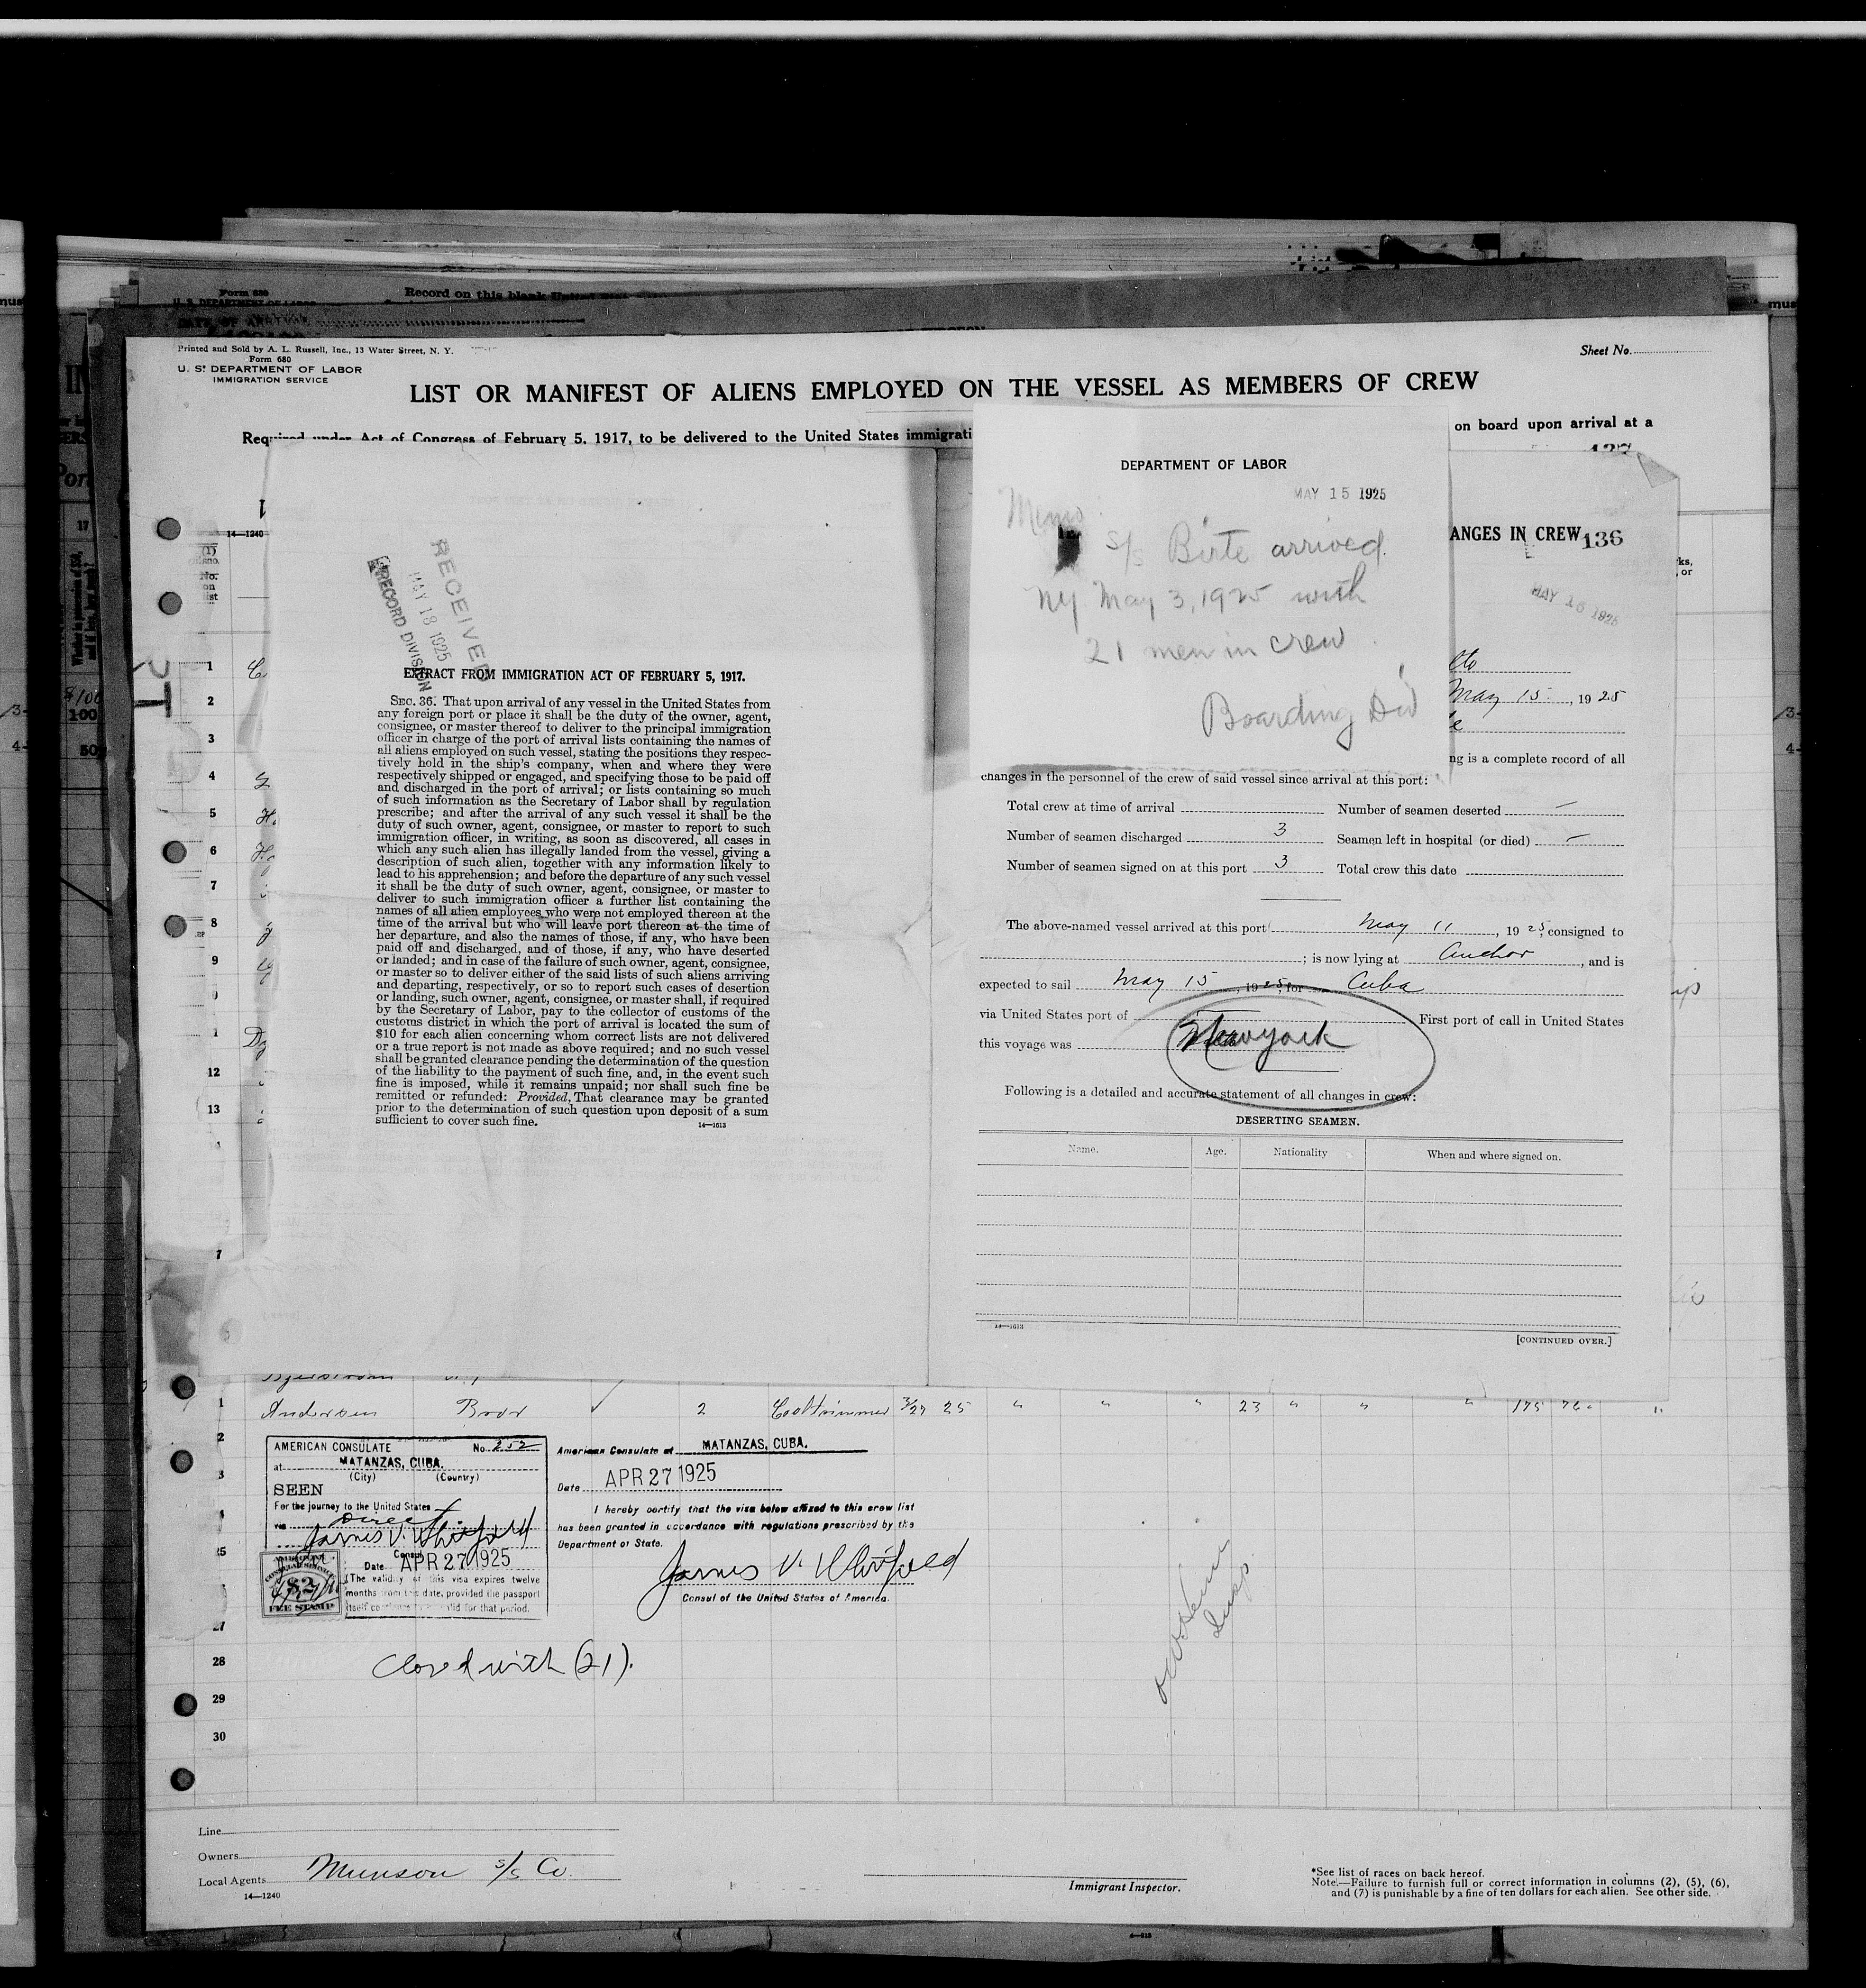 Form 680
Record on this blank United
Printed and Sold by A. L. Russell, Inc., 13 Water Street, N. Y.
Form 680
U. S. DEPARTMENT OF LABOR
IMMIGRATION SERVICE
Sheet No.
LIST OR MANIFEST OF ALIENS EMPLOYED ON THE VESSEL AS MEMBERS OF CREW
Required under Act of Congress of February 5, 1917, to be delivered to the United States immigrati
on board upon arrival at a
14—1240
No.
on
list
RECEIVED
MAY 18 1925
RECORD DIVISION
EXTRACT FROM IMMIGRATION ACT OF FEBRUARY 5, 1917.
SEC. 36. That upon arrival of any vessel in the United States from
any foreign port or place it shall be the duty of the owner, agent,
consignee, or master thereof to deliver to the principal immigration
officer in charge of the port of arrival lists containing the names of
all aliens employed on such vessel, stating the positions they respec-
tively hold in the ship's company, when and where they were
respectively shipped or engaged, and specifying those to be paid off
and discharged in the port of arrival; or lists containing so much
of such information as the Secretary of Labor shall by regulation
prescribe; and after the arrival of any such vessel it shall be the
duty of such owner, agent, consignee, or master to report to such
immigration officer, in writing, as soon as discovered, all cases in
which any such alien has illegally landed from the vessel, giving a
description of such alien, together with any information likely to
lead to his apprehension; and before the departure of any such vessel
it shall be the duty of such owner, agent, consignee, or master to
deliver to such immigration officer a further list containing the
names of all alien employees who were not employed thereon at the
time of the arrival but who will leave port thereon at the time of
her departure, and also the names of those, if any, who have been
paid off and discharged, and of those, if any, who have deserted
or landed; and in case of the failure of such owner, agent, consignee,
or master so to deliver either of the said lists of such aliens arriving
and departing, respectively, or so to report such cases of desertion
or landing, such owner, agent, consignee, or master shall, if required
by the Secretary of Labor, pay to the collector of customs of the
customs district in which the port of arrival is located the sum of
$10 for each alien concerning whom correct lists are not delivered
or a true report is not made as above required; and no such vessel
shall be granted clearance pending the determination of the question
of the liability to the payment of such fine, and, in the event such
fine is imposed, while it remains unpaid; nor shall such fine be
remitted or refunded: Provided, That clearance may be granted
prior to the determination of such question upon deposit of a sum
sufficient to cover such fine.
14—1613
DEPARTMENT OF LABOR
MAY 15 1925
Memo:
S/S Birte arrived
NY May 3, 1925 with
21 men in crew
Boarding Div
ANGES IN CREW
136
MAY 16 1925
May 15, 1925
ng is a complete record of all
changes in the personnel of the crew of said vessel since arrival at this port:
Total crew at time of arrival Number of seamen deserted —
Number of seamen discharged 3 Seamen left in hospital (or died) —
Number of seamen signed on at this port 3 Total crew this date
The above-named vessel arrived at this port May 11, 1925, consigned to
; is now lying at Anchor, and is
expected to sail May 15, 1925, for Cuba
via United States port of First port of call in United States
this voyage was New york
Following is a detailed and accurate statement of all changes in crew:
DESERTING SEAMEN.
Name. Age. Nationality When and where signed on.
14—1613
[CONTINUED OVER.]
1 Andersen Bror ✓ 2 Coaltrimmer 3/27 25 " " " 23 " " " 175 76
AMERICAN CONSULATE No. 252
at MATANZAS, CUBA.
(City) (Country)
SEEN
For the journey to the United States
via Direct
James V. Whitfield
Consul
Date APR 27 1925
(The validity of this visa expires twelve
months from this date, provided the passport
itself continues to be valid for that period.
$2
FEE STAMP
American Consulate at MATANZAS, CUBA.
Date APR 27 1925
I hereby certify that the visa below affixed to this crew list
has been granted in accordance with regulations prescribed by the
Department of State.
James V. Whitfield
Consul of the United States of America.
Closed with (21).
28
29
30
Line
Owners
Local Agents Munson S/S Co.
14—1240
Immigrant Inspector.
*See list of races on back hereof.
Note.—Failure to furnish full or correct information in columns (2), (5), (6),
and (7) is punishable by a fine of ten dollars for each alien. See other side.